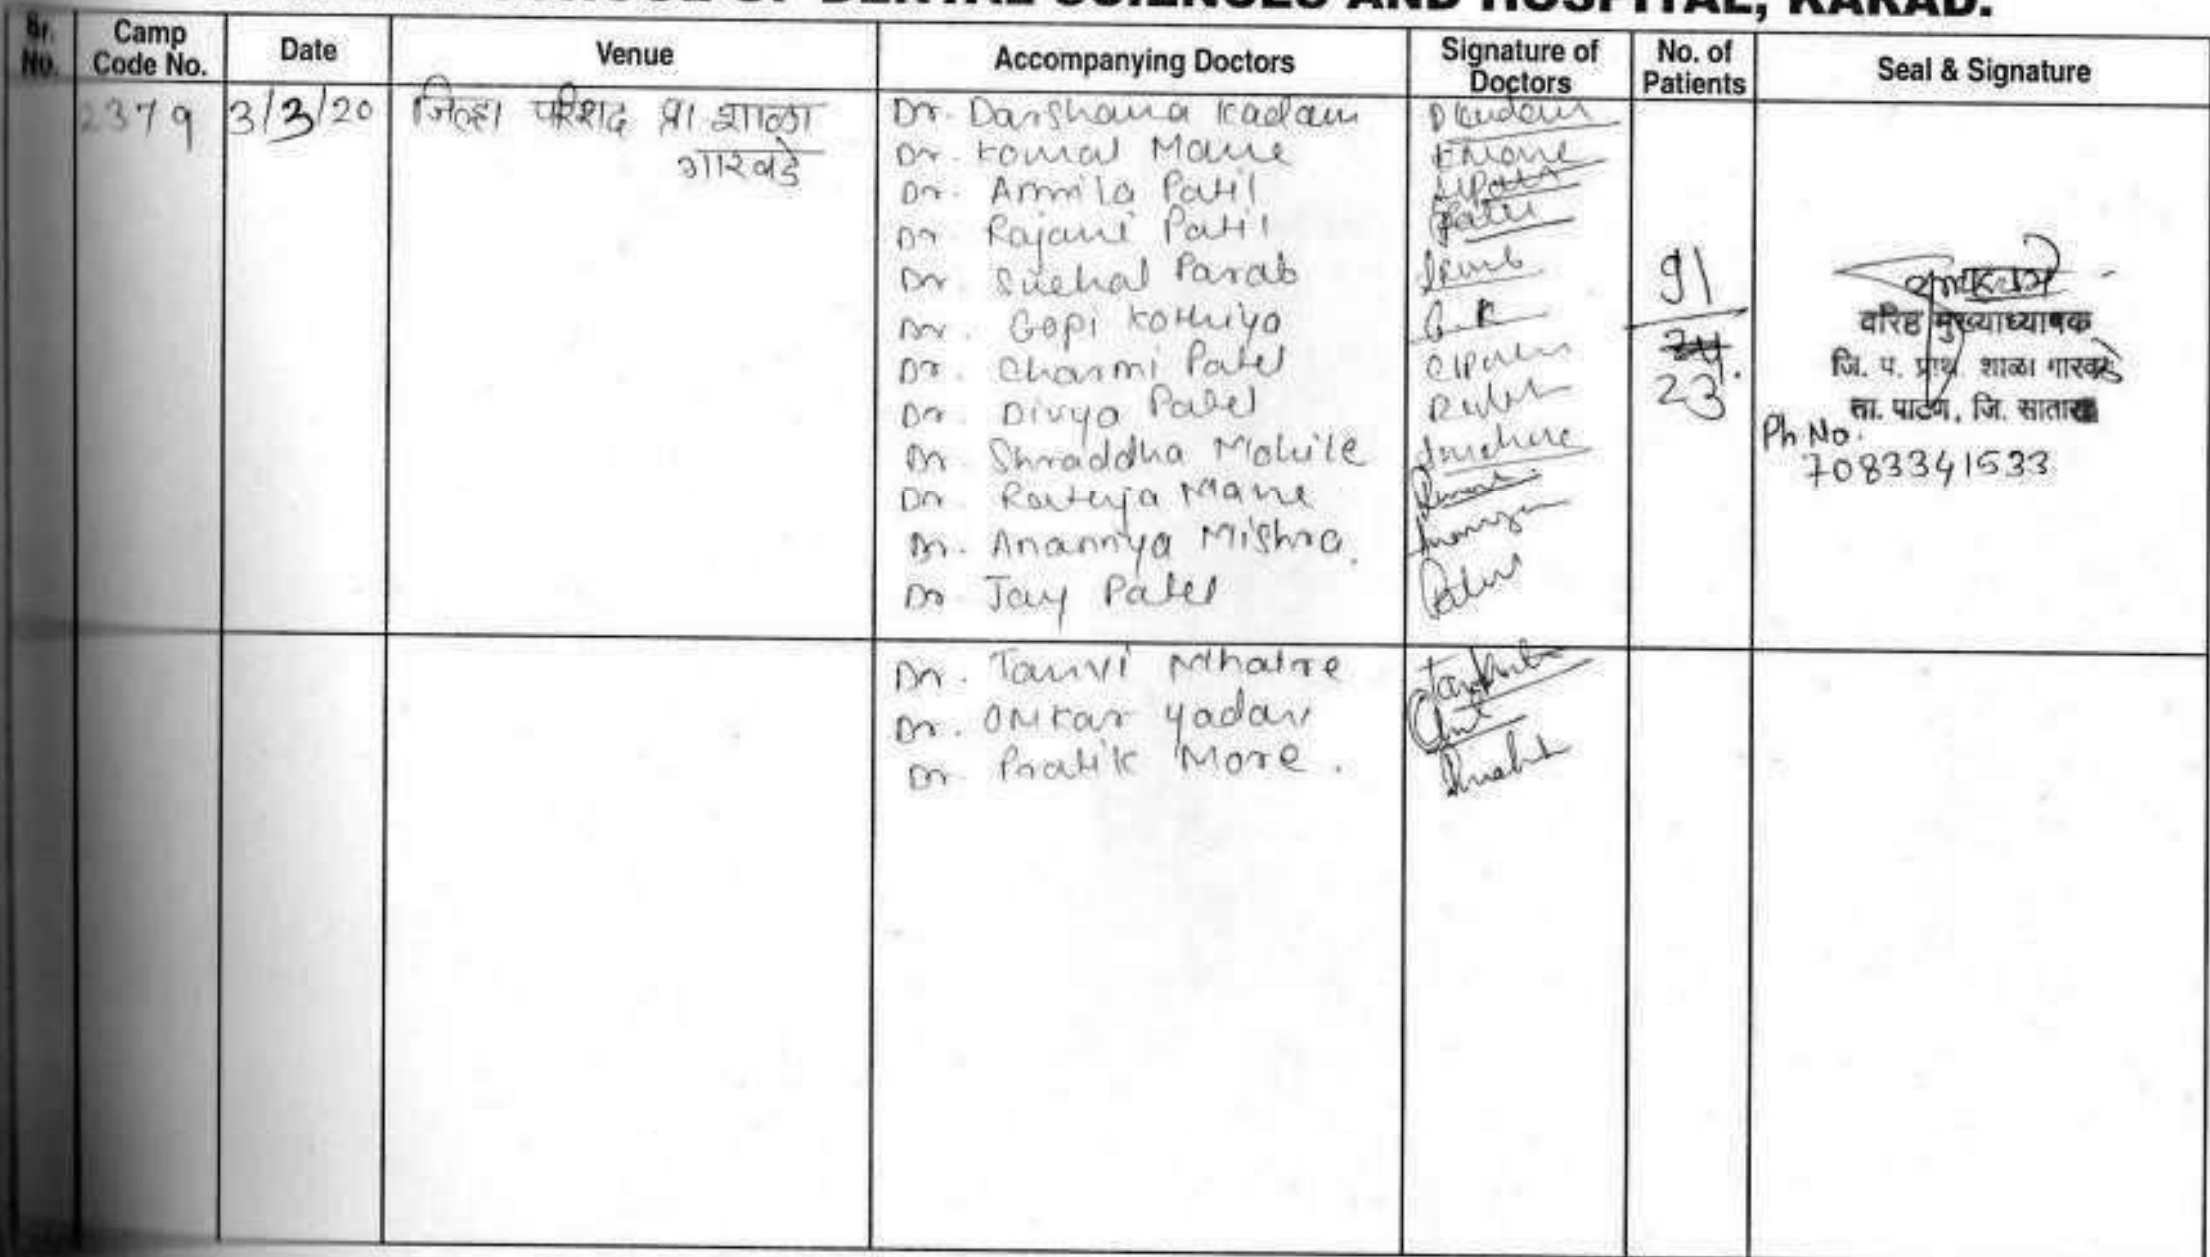 OF DENTAL SCIENCES AND HOSPITAL, KARAD.
Sr. No. Camp Code No. Date Venue Accompanying Doctors Signature of Doctors No. of Patients Seal & Signature
2379 3/3/20 जिल्हा परिशद प्रा शाळा
गारवडे
Dr. Darshana Kadam
Dr. Komal Mane
Dr. Amila Patil
Dr. Rajani Patil
Dr. Snehal Parab
Dr. Gopi Kothiya
Dr. Charmi Patel
Dr. Divya Patel
Dr. Shraddha Mohile
Dr. Rutuja Mane
Dr. Anannya Mishra.
Dr. Jay Patel
91
24.
23
वरिष्ठ मुख्याध्यापक
जि. प. प्राथ. शाळा गारवडे
ता. पाटण, जि. सातारा
Ph No.
7083341533
Dr. Tanvi Mhatre
Dr. Omkar Yadav
Dr. Pratik More.